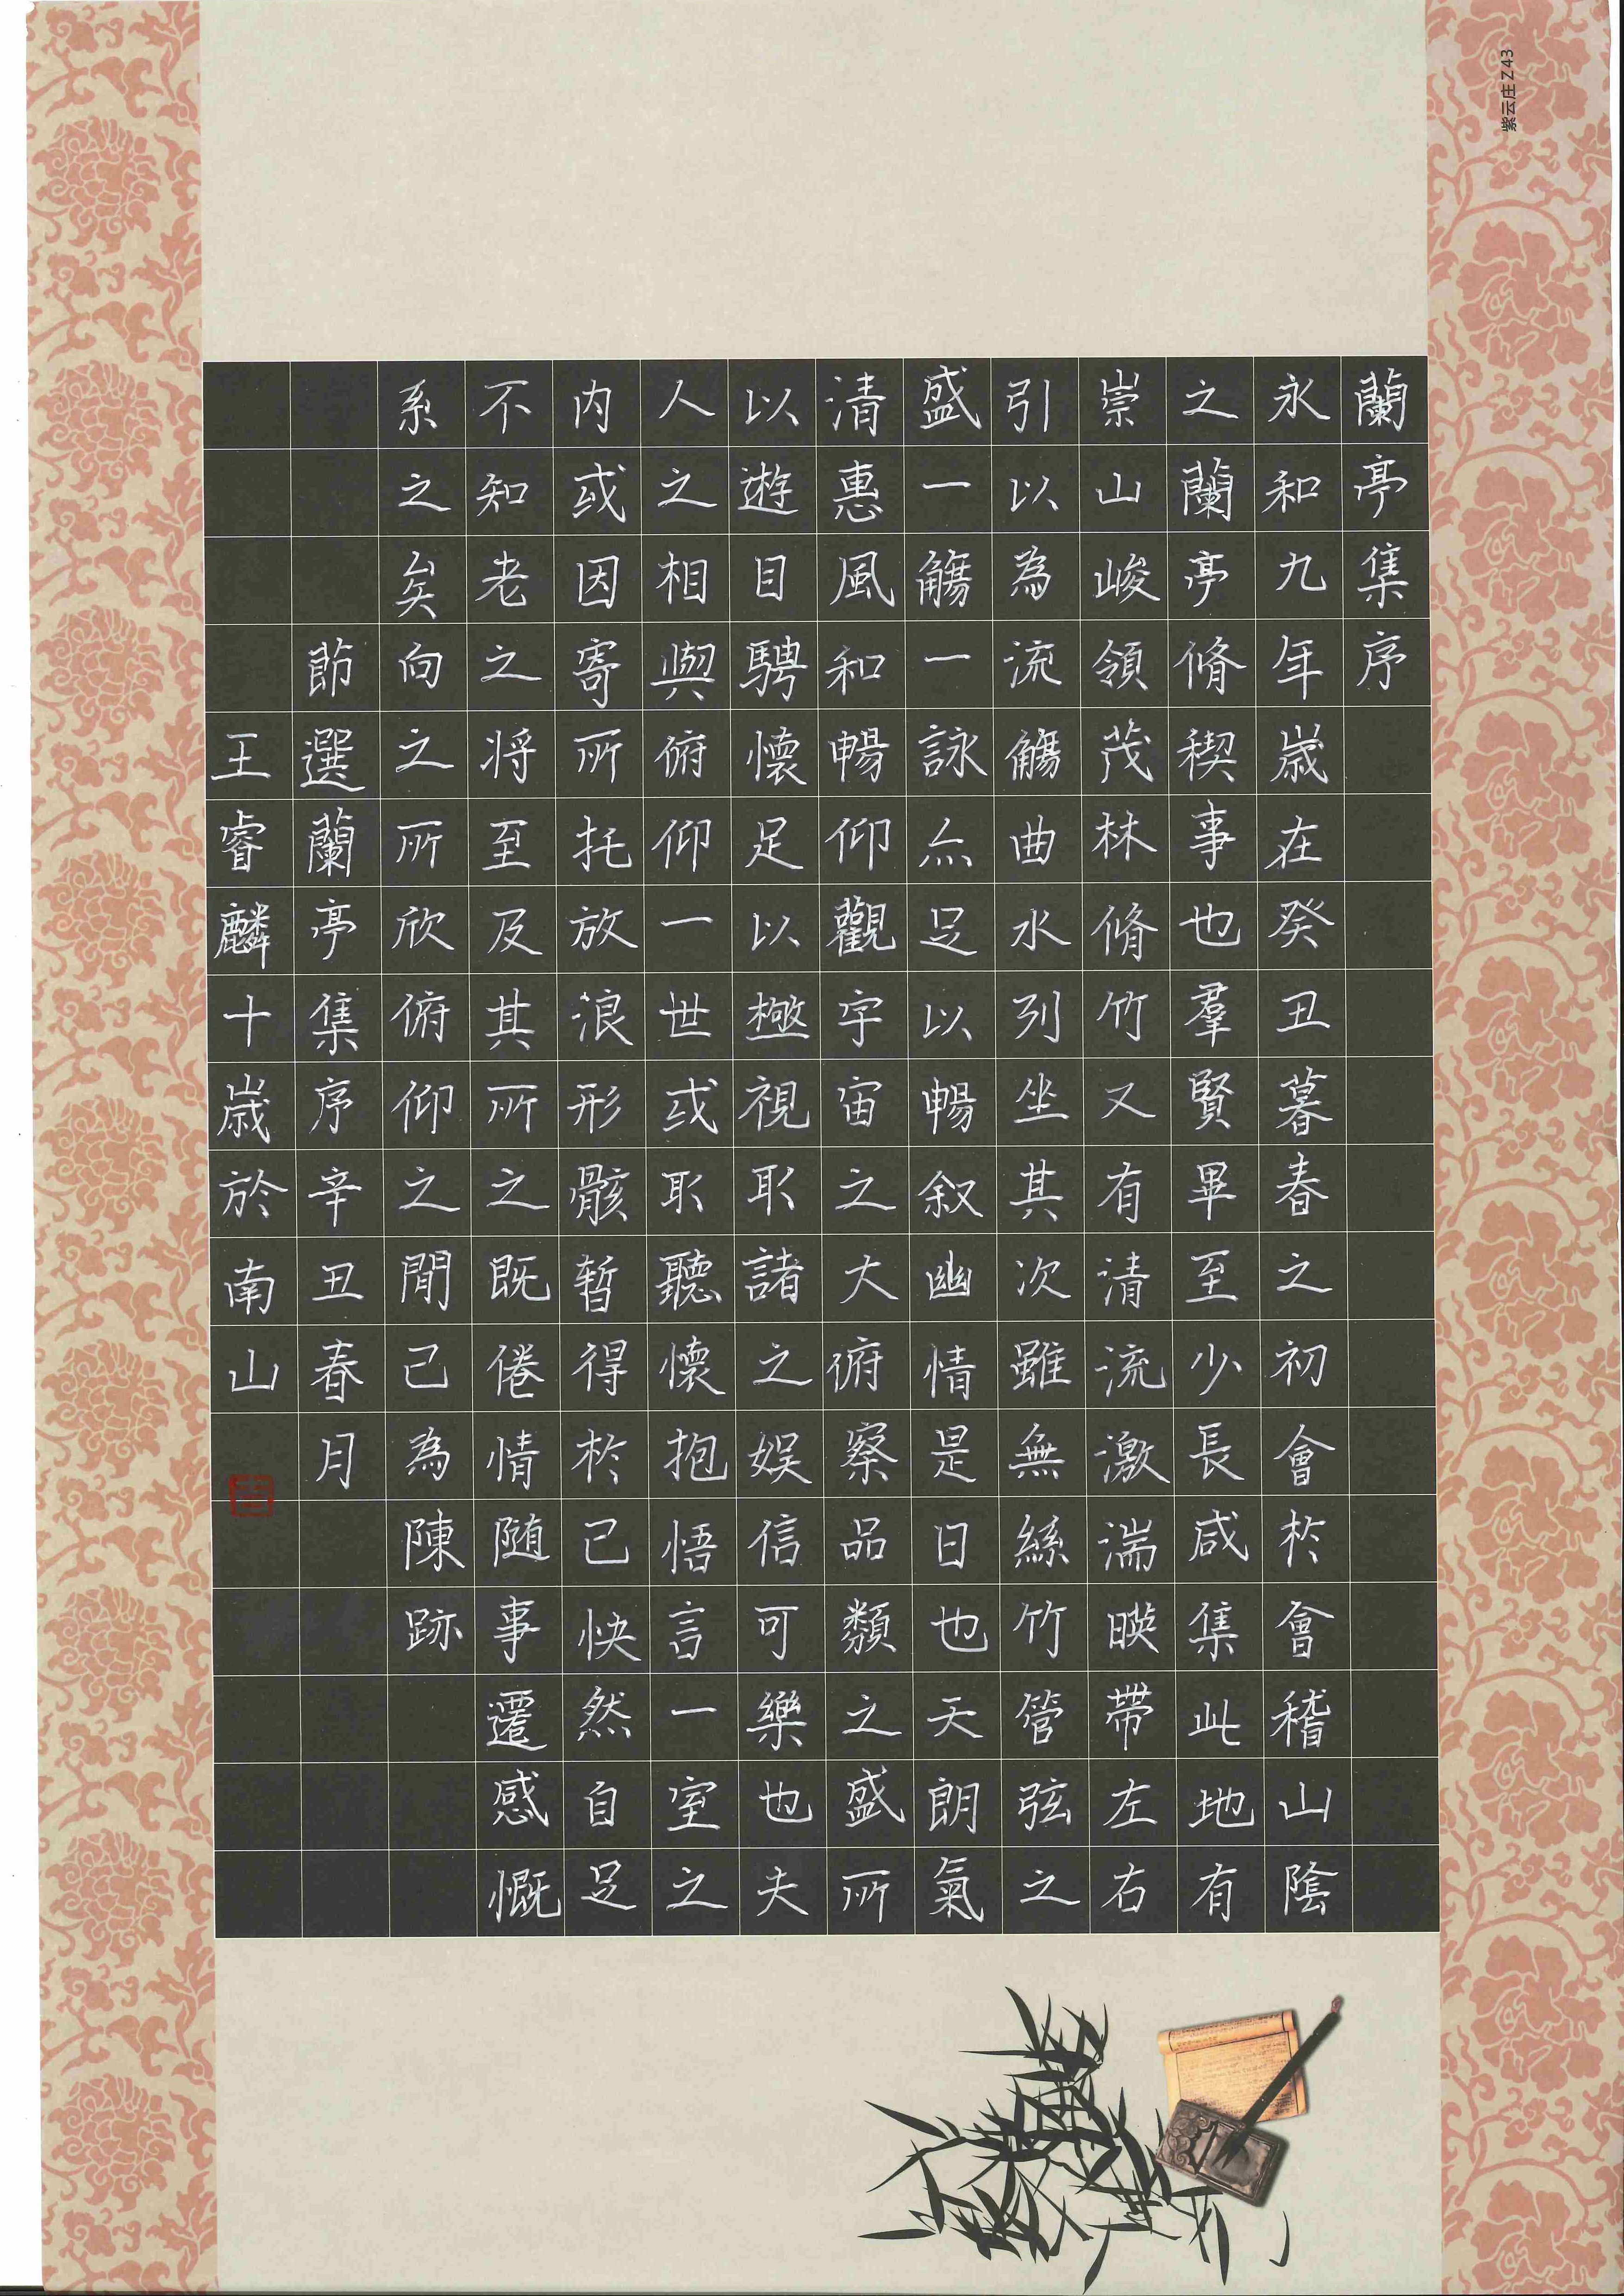 蘭亭集序
永和九年歲在癸丑暮春之初會於會稽山陰
之蘭亭脩稧事也羣賢畢至少長咸集此地有
崇山峻領茂林脩竹又有清流激湍暎帶左右
引以為流觴曲水列坐其次雖無絲竹管弦之
盛一觴一詠亦足以暢叙幽情是日也天朗氣
清惠風和暢仰觀宇宙之大俯察品類之盛所
以遊目騁懷足以極視聽諸之娛信可樂也夫
人之相與俯仰一世或取聽懷抱悟言一室之
內或因寄所托放浪形骸暫得於己快然自足
不知老之将至及其所之既倦情随事遷感慨
系之矣向之所欣俯仰之間已為陳跡
節選蘭亭集序辛丑春月
王睿麟十歲於南山
紫云庄 Z43